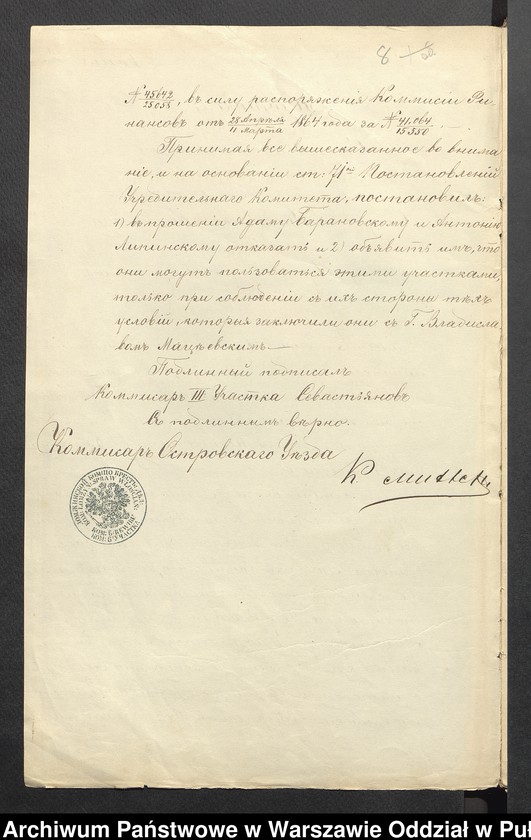 8
№ 45642/25058, въ силу распоряженія Коммисіи Фи-
нансовъ отъ 28 Апрѣля/11 Марта 1864 года за № 41,064/15550.—
Принимая все вышесказанное во внима-
ніе, и на основаніи ст: 71ой Постановленій
Учредительнаго Комитета, постановилъ:
1) въ прошеніи Адаму Барановскому и Антонію
Липинскому отказать и 2) объявить имъ, что
они могутъ пользоваться этими участками,
только при соблюденіи съ ихъ стороны тѣхъ
условій, которыя заключили они съ Г. Владисла-
вомъ Мацѣевскимъ.—
Подлинный подписалъ
Коммисаръ III Участка Севастьяновъ
Съ подлиннымъ вѣрно:
Коммисаръ Островскаго Уѣзда
Archiwum Państwowe w Warszawie Oddział w Puł